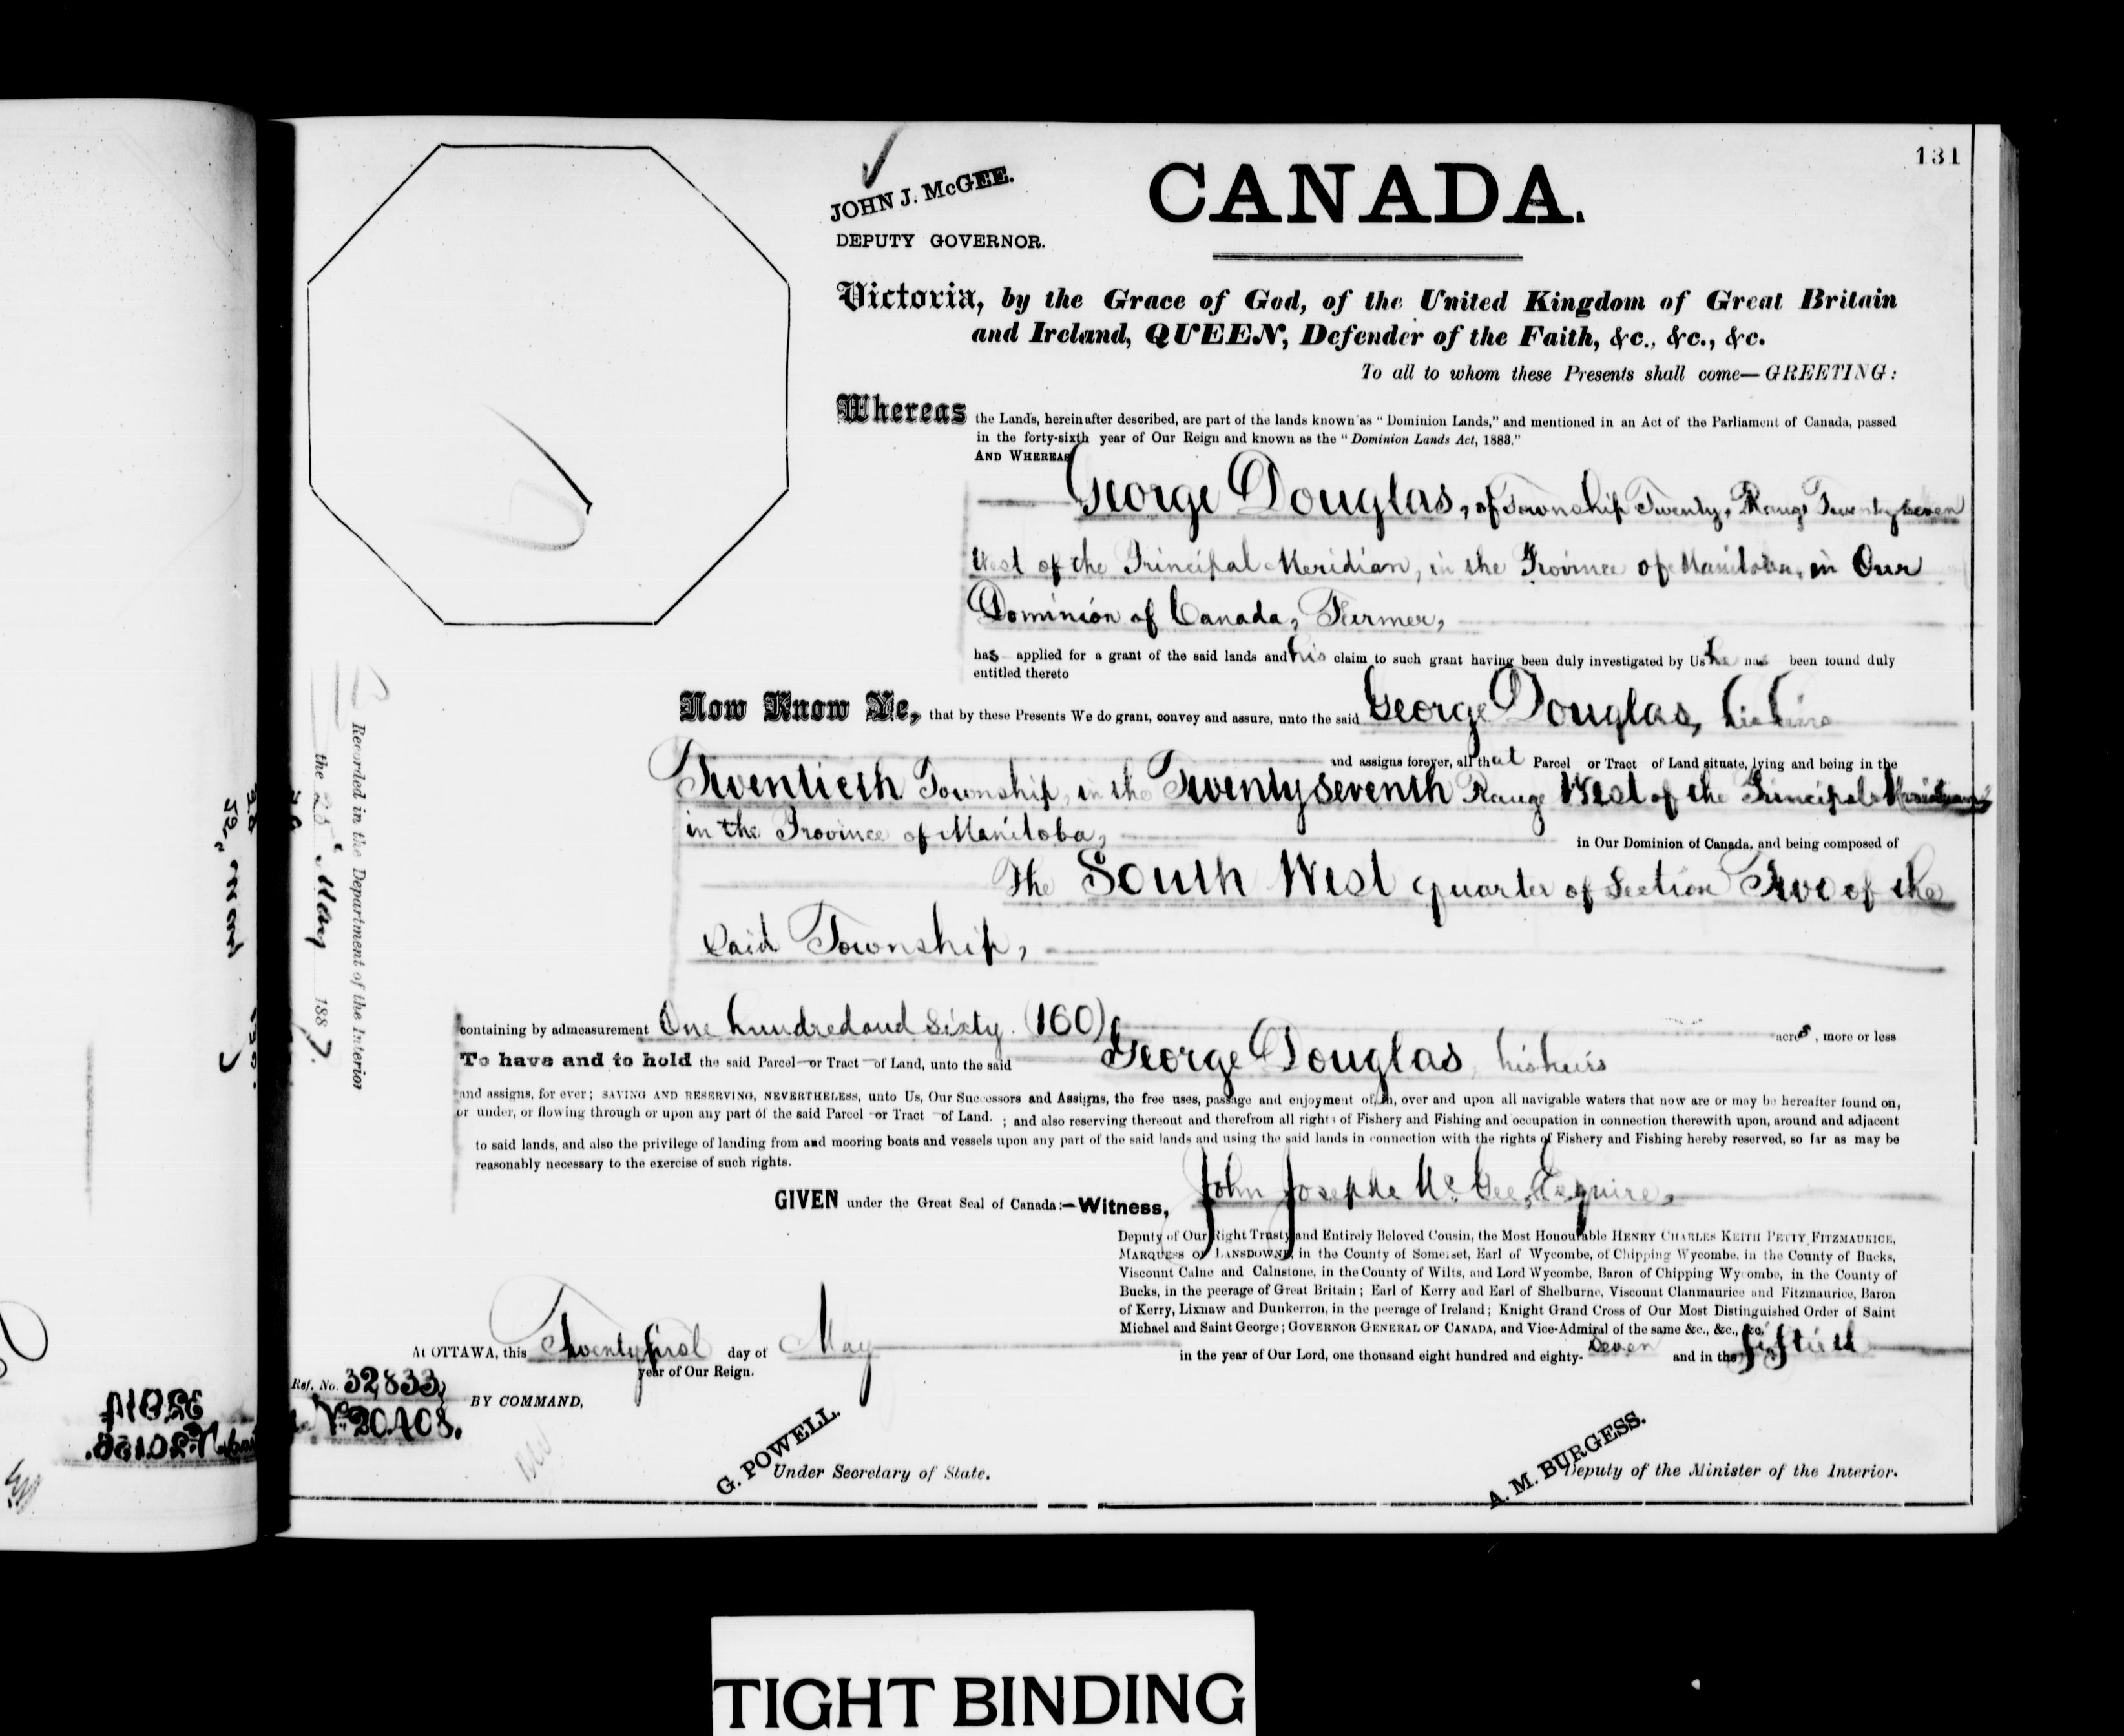 131
JOHN J. McGEE.
DEPUTY GOVERNOR.
CANADA.
Victoria, by the Grace of God, of the United Kingdom of Great Britain
and Ireland, QUEEN, Defender of the Faith, &c., &c., &c.
To all to whom these Presents shall come—GREETING:
Whereas the Lands, hereinafter described, are part of the lands known as "Dominion Lands," and mentioned in an Act of the Parliament of Canada, passed
in the forty-sixth year of Our Reign and known as the "Dominion Lands Act, 1883."
AND WHEREAS
George Douglas, of Township Twenty, Range Twenty seven
West of the Principal Meridian, in the Province of Manitoba, in Our
Dominion of Canada, Farmer,
has applied for a grant of the said lands and his claim to such grant having been duly investigated by Us he has been found duly
entitled thereto
Now Know Ye, that by these Presents We do grant, convey and assure, unto the said George Douglas, his heirs
and assigns forever, all that Parcel or Tract of Land situate, lying and being in the
Twentieth Township, in the Twenty seventh Range West of the Principal Meridian
in the Province of Manitoba, in Our Dominion of Canada, and being composed of
The South West quarter of Section Two of the
said Township,
containing by admeasurement One hundred and sixty (160) acres, more or less
To have and to hold the said Parcel or Tract of Land, unto the said George Douglas, his heirs
and assigns, for ever; SAVING AND RESERVING, NEVERTHELESS, unto Us, Our Successors and Assigns, the free uses, passage and enjoyment of, in, over and upon all navigable waters that now are or may be hereafter found on,
or under, or flowing through or upon any part of the said Parcel or Tract of Land. ; and also reserving thereout and therefrom all rights of Fishery and Fishing and occupation in connection therewith upon, around and adjacent
to said lands, and also the privilege of landing from and mooring boats and vessels upon any part of the said lands and using the said lands in connection with the rights of Fishery and Fishing hereby reserved, so far as may be
reasonably necessary to the exercise of such rights.
GIVEN under the Great Seal of Canada:—Witness, John Joseph McGee, Esquire,
Deputy of Our Right Trusty and Entirely Beloved Cousin, the Most Honourable HENRY CHARLES KEITH PETTY FITZMAURICE,
MARQUESS OF LANSDOWNE, in the County of Somerset, Earl of Wycombe, of Chipping Wycombe, in the County of Bucks,
Viscount Calne and Calnstone, in the County of Wilts, and Lord Wycombe, Baron of Chipping Wycombe, in the County of
Bucks, in the peerage of Great Britain; Earl of Kerry and Earl of Shelburne, Viscount Clanmaurice and Fitzmaurice, Baron
of Kerry, Lixnaw and Dunkerron, in the peerage of Ireland; Knight Grand Cross of Our Most Distinguished Order of Saint
Michael and Saint George; GOVERNOR GENERAL OF CANADA, and Vice-Admiral of the same &c., &c., &c.
At OTTAWA, this Twenty first day of May in the year of Our Lord, one thousand eight hundred and eighty-seven and in the fiftieth
year of Our Reign.
Ref. No. 32833
BY COMMAND,
No 20408.
G. POWELL.
Under Secretary of State.
A. M. BURGESS.
Deputy of the Minister of the Interior.
Recorded in the Department of the Interior
the May 1887.
TIGHT BINDING